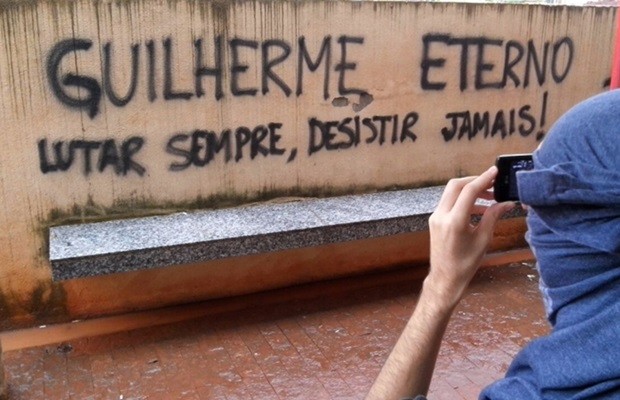 GUILHERME ETERNO
LUTAR SEMPRE, DESISTIR JAMAIS!